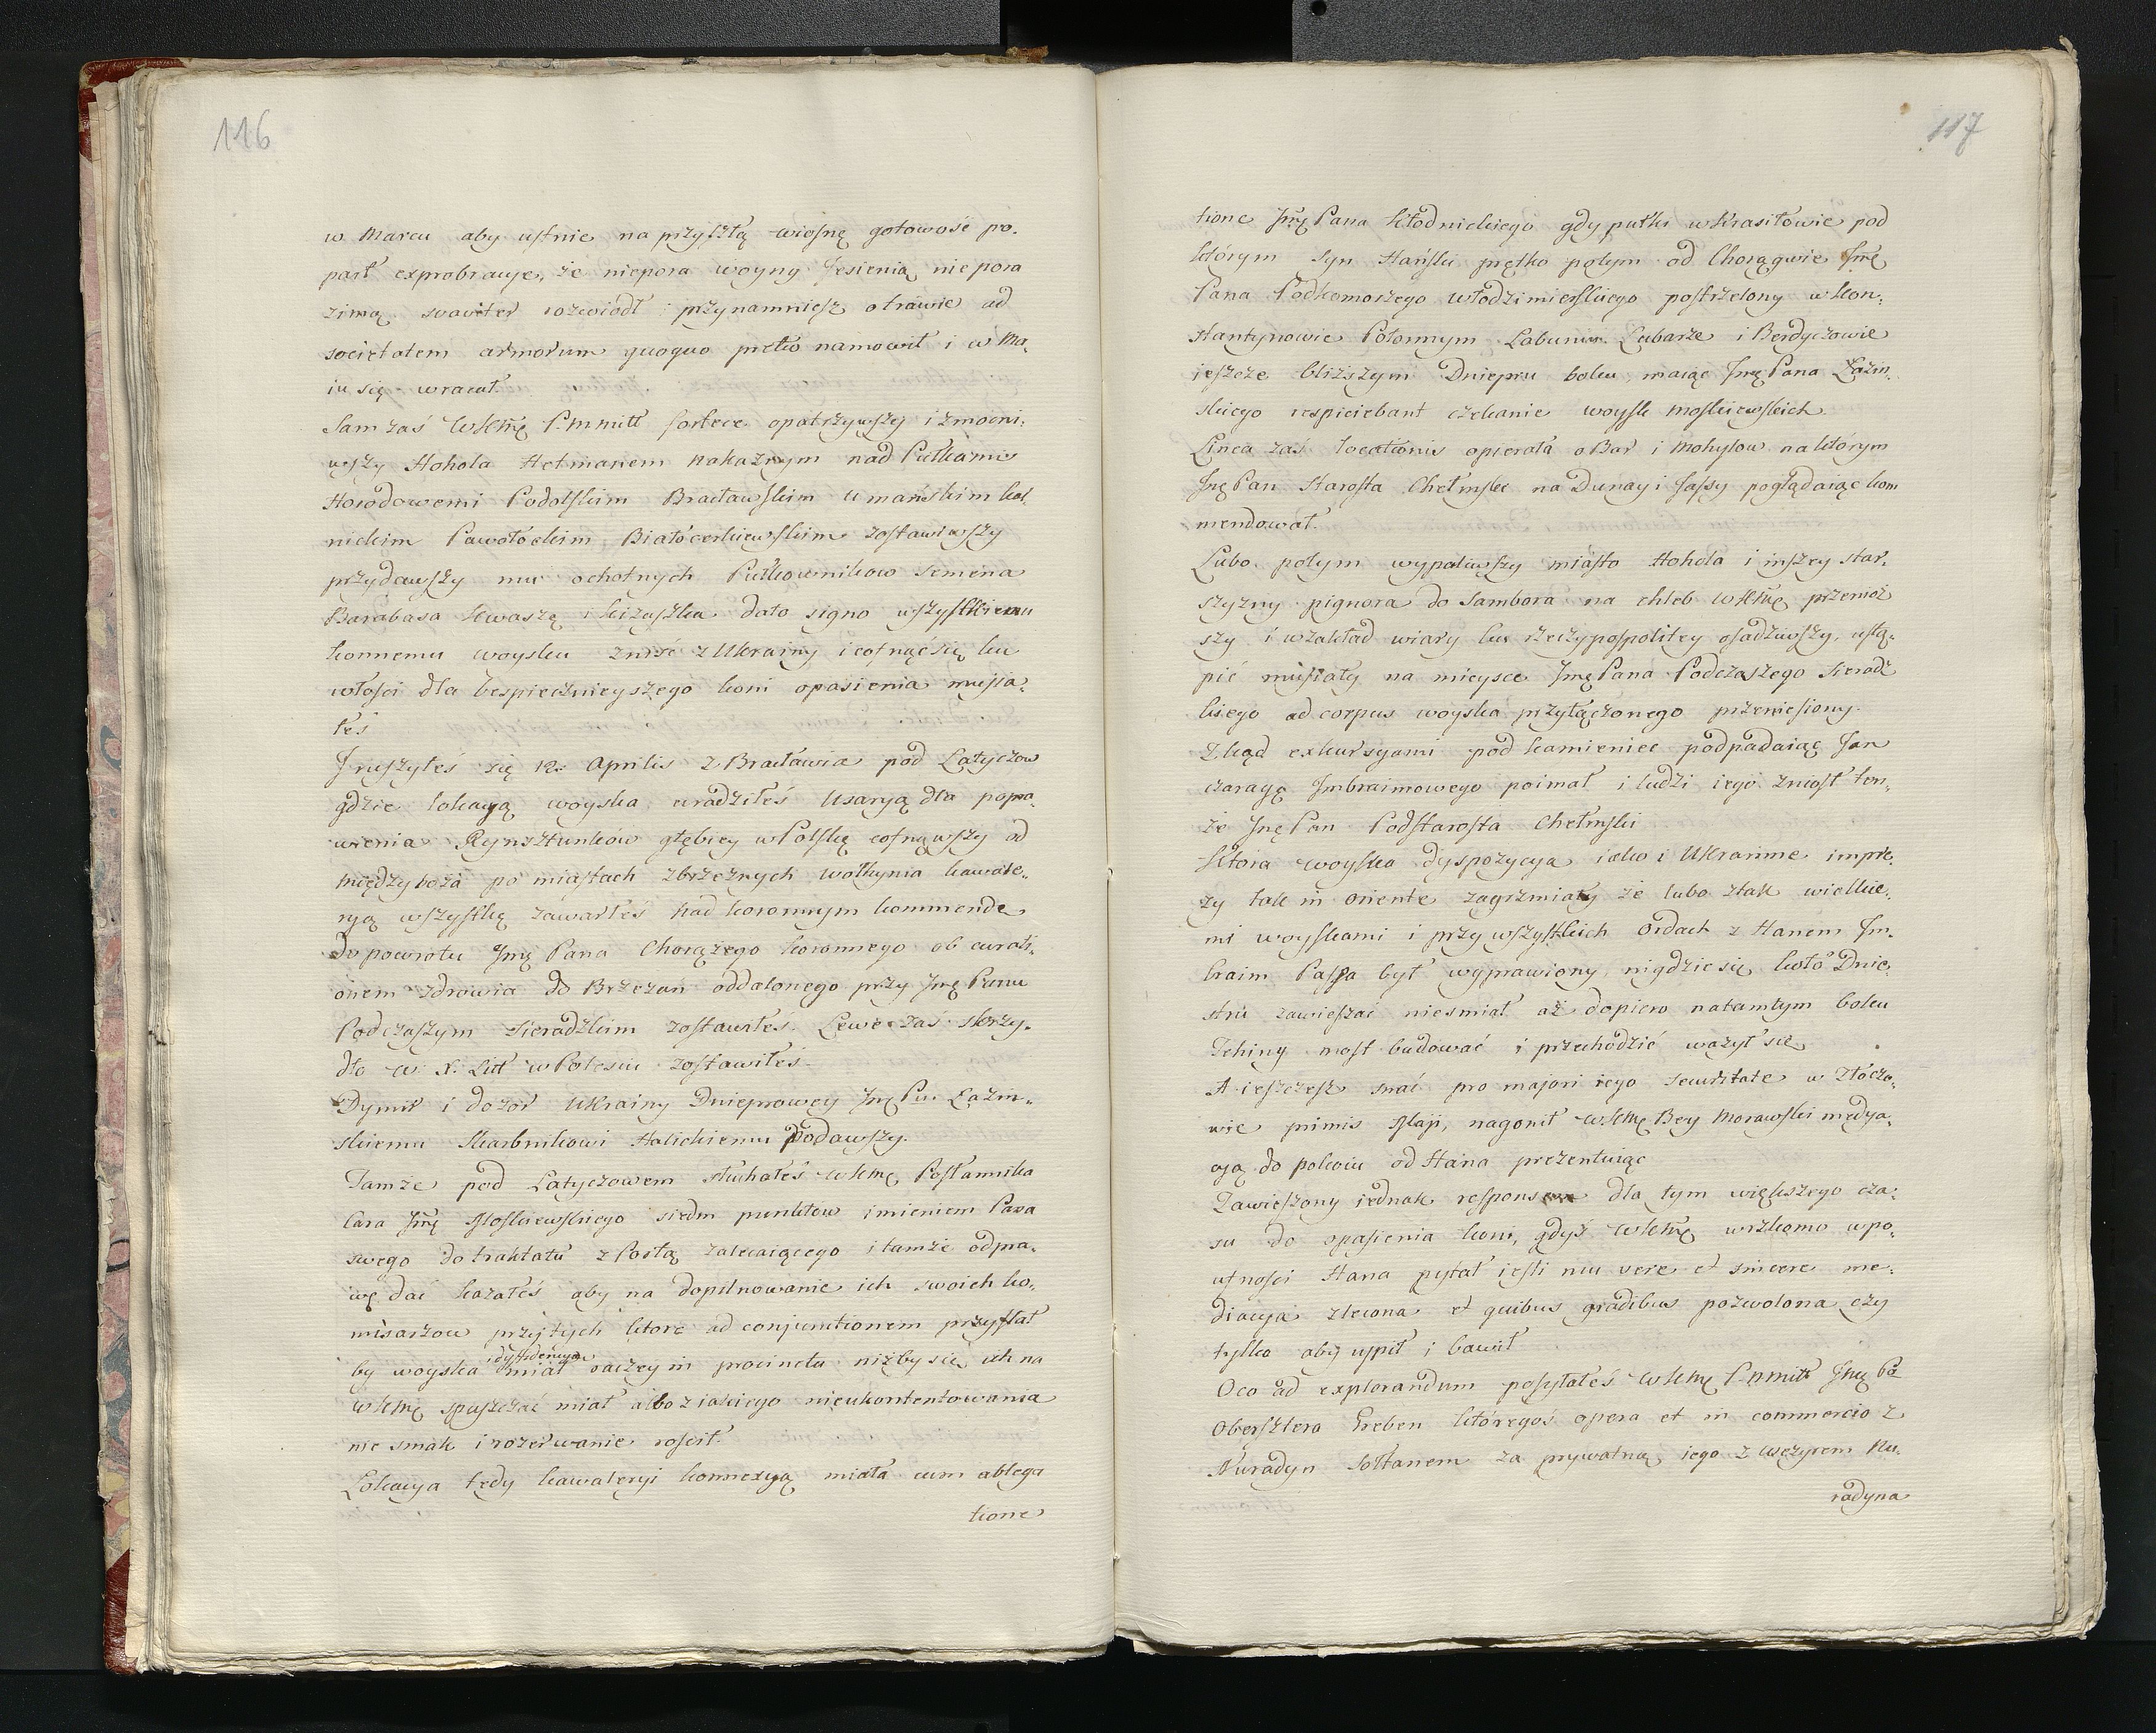 116
w Marcu aby ustnie na przyszłą wiosnę gotowość po-
parł exprobracye, że niepora woyny Jesienią nie pora
zimą svaviter rozwiodł i przynamniesz otrawie ad
societatem armorum quoquo pretio namowił i w Ma-
iu się wracał.
Sam zaś WKMę P.M.mitt fortece opatrzywszy i zmocni-
wszy Hohola Hetmanem nakaznym nad Pułkami
Horodowemi Podolskim Bracławskim Umańskim Kal-
nickim Pawołockim Białocerkiewskim zostawiwszy
przydawszy mu ochotnych Pułkownikow Semena
Barabasa Kwaszę i Kiżaszka dato signo wszystkiemu
konnemu woysku zniść z Ukrainy i cofnąć się ku
włości dla bespiecznieyszego koni opasienia musia-
łeś
Jruszyłeś się 12. Aprilis z Bracławia pod Latyczow
gdzie lokacyą woyska uradziłeś Usaryą dla popra-
wienia Rynsztunków głębiey w Polskę cofnąwszy od
Międzyboża po miastach zbrzeżnych Wołłynia kawale-
ryą wszystkę zawarłeś nad koronnym kommende
do powrotu Jmę Pana Chorążego koronnego ob curati-
onem zdrowia do Brzeżan oddalonego przy Jmę Panu
Podczaszym Sieradzkim zostawiłeś. Lewe zaś skrzy-
dło W. X. Litt w Polesiu zostawiłeś.
Dymir i dozor Ukrainy Dnieprowey Jmę Pu. Łaźin-
skiemu Skarbnikowi Halickiemu podawszy.
Tamże pod Latyczowem słuchałeś WKMę Posłannika
Cara Jmę Moskiewskiego siedm punktow imieniem Pana
swego do traktatu z Portą zalecaiącego i tamże odpra-
wę dać kazałeś aby na dopilnowanie ich swoich ko-
misarzow przejtych które ad conjunctionem przysłał
by woyska i dyffidencya miał raczey in procinctu niżby się ich na
WKMę spuszczać miał albo z iakiego nieukontentowania
nie smak i rozerwanie rościł.
Lokacya tedy kawaleryi konnexyą miała cum ablega
tione
117
tione Jmę Pana Kłodnickiego gdy pułki w Krasiłowie pod
którym Syn Hański prętko potym od Chorągwie Jmę
Pana Podkomorzego Włodzimierskiego postrzelony w Kon-
stantynowie Połonnym Łabuniu Lubarze i Berdyczowie
ieszcze bliższym Dniepru boku, maiąc Jmę Pana Łaźin-
skiego respiciebant czekanie woysk moskiewskich.
Linea zaś locationis opierała o Bar i Mohylow na którym
Jmę Pan Starosta Chełmski na Dunay i Jassy poglądaiąc kom
mendował.
Lubo potym wypaliwszy miasto Hohola i inszey star-
szyzny pignora do Sambora na chleb WKMę przeniosz
szy i w zakład wiary ku rzeczypospolitey osadziwszy, ustą-
pić musiały na mieysce Jmę Pana Podczaszego Sieradz
kiego ad corpus woyska przyłączonego przeniesiony.
Zkąd exkursyami pod Kamieniec podpadaiąc Jan
czaragę Imbraimowego poimał i ludzi iego zniosł ten-
że Jmę Pan Podstarosta Chełmski
Która woyska dyspozycya iako i Ukrainne impre-
zy tak in oriente zagrzmiały że lubo ztak wielkie-
mi woyskami i przy wszystkich Ordach z Hanem Im-
braim Passa był wyprawiony nigdzie się koło Dnie-
stru zawieszać niesmiał aż dopiero natamtym boku
Tehiny most budować i przechodzić ważył się
A ieszczesz snać pro majori iego securitate w Złóczo-
wie primis Maji, nagonił WKMę Bey Morawski medya-
cyą do pokoiu od Hana prezentuiąc
Zawieszony iednak respons dla tym większego cza-
su do opasienia koni, gdyż WKMę wrzkomo w po-
ufności Hana pytał iesli mu vere et sincere me-
diacya zlecona et quibus gradibus pozwolona czy
tylko aby uspił i bawił
Oco ad explorandum posyłałeś WKMę P.M.mitt Jmę Pa
Obersztera Greben któregoś opera et in commercio z
Nuradyn Sołtanem za prywatną iego z Wezyrem Nu-
radyna